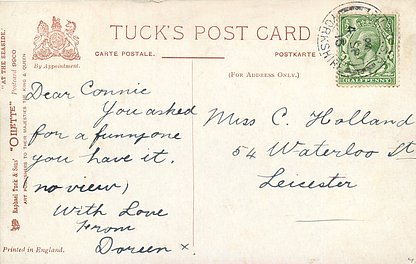 TUCK'S POST CARD
CARTE POSTALE.
POSTKARTE
By Appointment.
(FOR ADDRESS ONLY.)
"AT THE SEASIDE."
Raphael Tuck & Sons' "OILETTE"
ART PUBLISHERS TO THEIR MAJESTIES THE KING & QUEEN
Dear Connie
You asked
for a funny one
you have it.
no view)
With Love
From
Doreen x
Miss C. Holland
54 Waterloo St
Leicester
HALFPENNY
Printed in England.